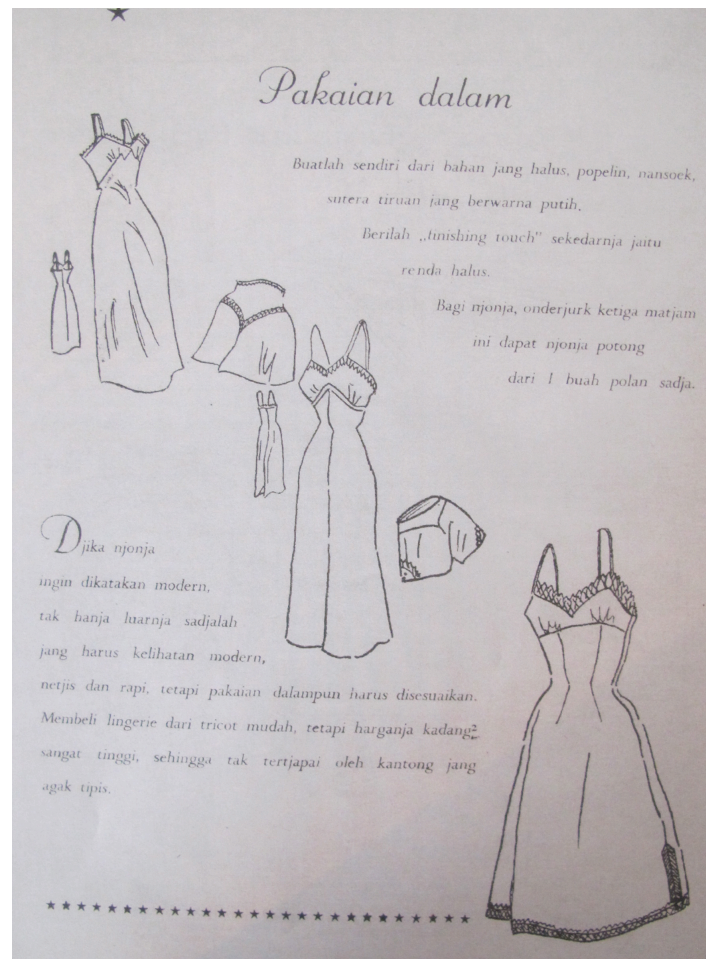 Pakaian dalam
Buatlah sendiri dari bahan jang halus, popelin, nansoek,
sutera tiruan jang berwarna putih,
Berilah „finishing touch" sekedarnja jaitu
renda halus.
Bagi njonja, onderjurk ketiga matjam
ini dapat njonja potong
dari 1 buah polan sadja.
Djika njonja
ingin dikatakan modern,
tak hanja luarnja sadjalah
jang harus kelihatan modern,
netjis dan rapi, tetapi pakaian dalampun harus disesuaikan.
Membeli lingerie dari tricot mudah, tetapi harganja kadang²
sangat tinggi, sehingga tak tertjapai oleh kantong jang
agak tipis.